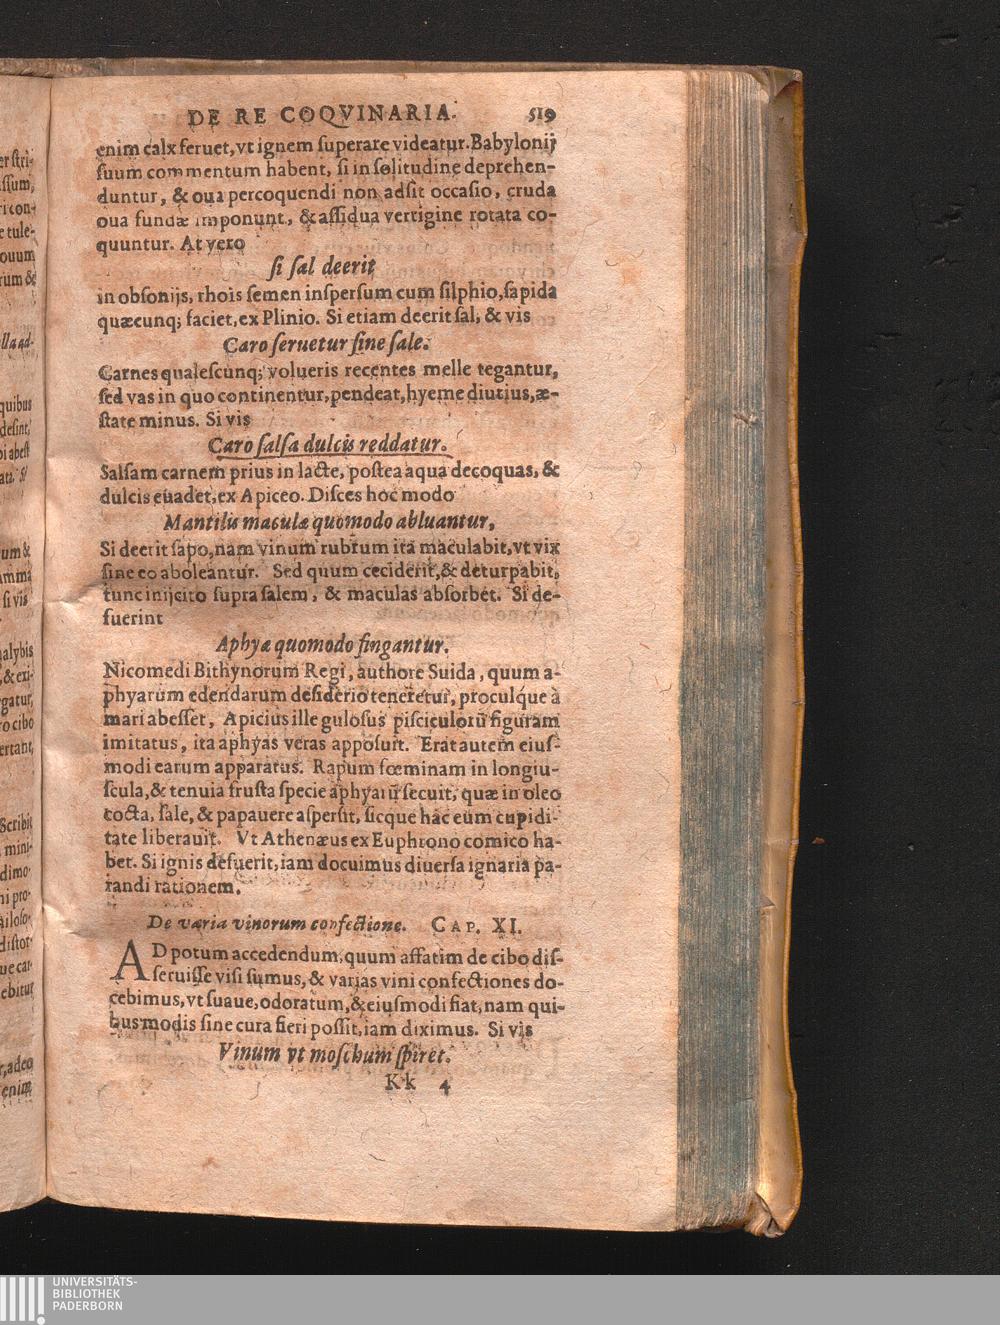 DE RE COQVINARIA. 519
enim calx feruet, vt ignem superare videatur. Babylonij
suum commentum habent, si in solitudine deprehen-
duntur, & oua percoquendi non adsit occasio, cruda
oua fundæ imponunt, & assidua vertigine rotata co-
quuntur. At vero
si sal deerit
in obsonijs, rhois semen inspersum cum silphio, sapida
quæcunq; faciet, ex Plinio. Si etiam deerit sal, & vis
Caro seruetur sine sale.
Carnes qualescunq; volueris recentes melle tegantur,
sed vas in quo continentur, pendeat, hyeme diutius, æ-
state minus. Si vis
Caro salsa dulcis reddatur.
Salsam carnem prius in lacte, postea aqua decoquas, &
dulcis euadet, ex Apiceo. Disces hoc modo
Mantilis maculæ quomodo abluantur,
Si deerit sapo, nam vinum rubrum ita maculabit, vt vix
sine eo aboleantur. Sed quum ceciderit, & deturpabit,
tunc inijcito supra salem, & maculas absorbet. Si de-
fuerint
Aphyæ quomodo fingantur.
Nicomedi Bithynorum Regi, authore Suida, quum a-
phyarum edendarum desiderio teneretur, proculq́ue à
mari abesset, Apicius ille gulosus pisciculorũ figuram
imitatus, ita aphyas veras apposuit. Erat autem eius-
modi earum apparatus. Rapum fœminam in longiu-
scula, & tenuia frusta specie aphyarũ secuit, quæ in oleo
cocta, sale, & papauere aspersit, sicque hac eum cupidi-
tate liberauit. Vt Athenæus ex Euphrono comico ha-
bet. Si ignis defuerit, iam docuimus diuersa ignaria pa-
randi rationem.
De varia vinorum confectione. CAP. XI.
AD potum accedendum, quum affatim de cibo dis-
seruisse visi sumus, & varias vini confectiones do-
cebimus, vt suaue, odoratum, & eiusmodi fiat, nam qui-
bus modis sine cura fieri possit, iam diximus. Si vis
Vinum vt moschum spiret.
Kk 4
UNIVERSITÄTS-
BIBLIOTHEK
PADERBORN